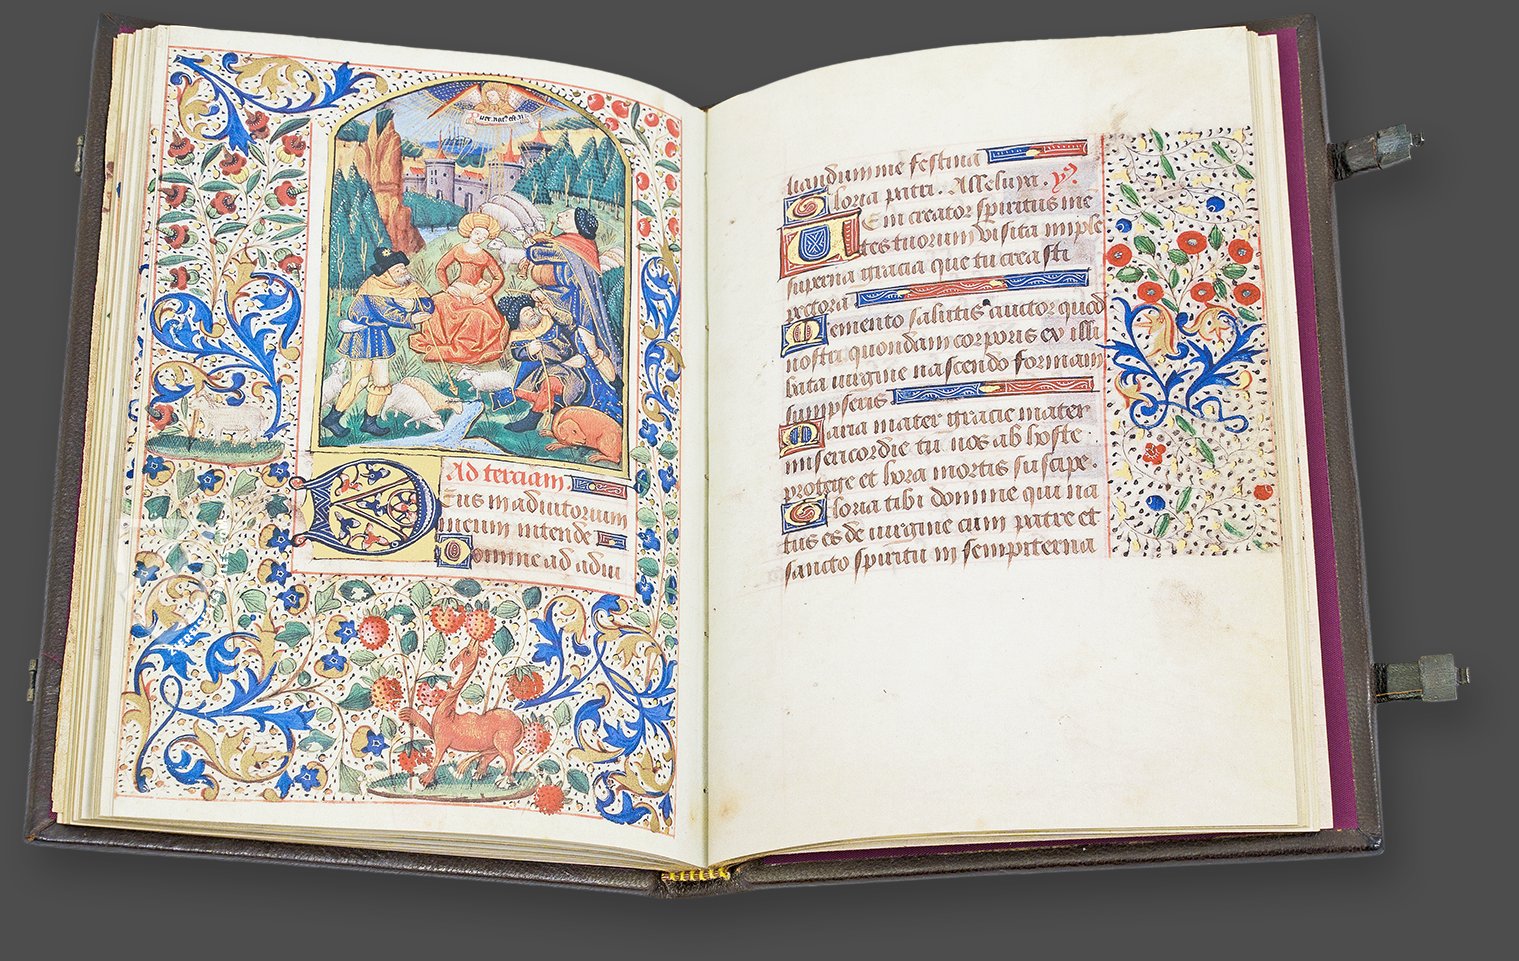 Ad terciam
Deus in adiutorium
meum intende
Domine ad adiu
uandum me festina
Gloria patri. Alleluya. ym̄
Veni creator spiritus me
tes tuorum visita imple
superna gracia que tu creasti
pectora
Memento salutis auctor quod
nostri quondam corporis ex illi
bata uirgine nascendo formam
sumpseris
Maria mater gracie mater
misericordie tu nos ab hoste
protege et hora mortis suscipe.
Gloria tibi domine qui na
tus es de uirgine cum patre et
sancto spiritu in sempiterna